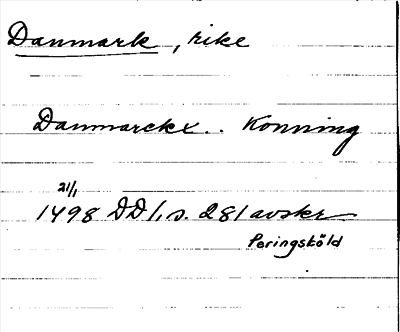 Danmark, rike
Danmarckx.. Konning
21/1
1498 DD 1, s. 281 avskr
Peringsköld